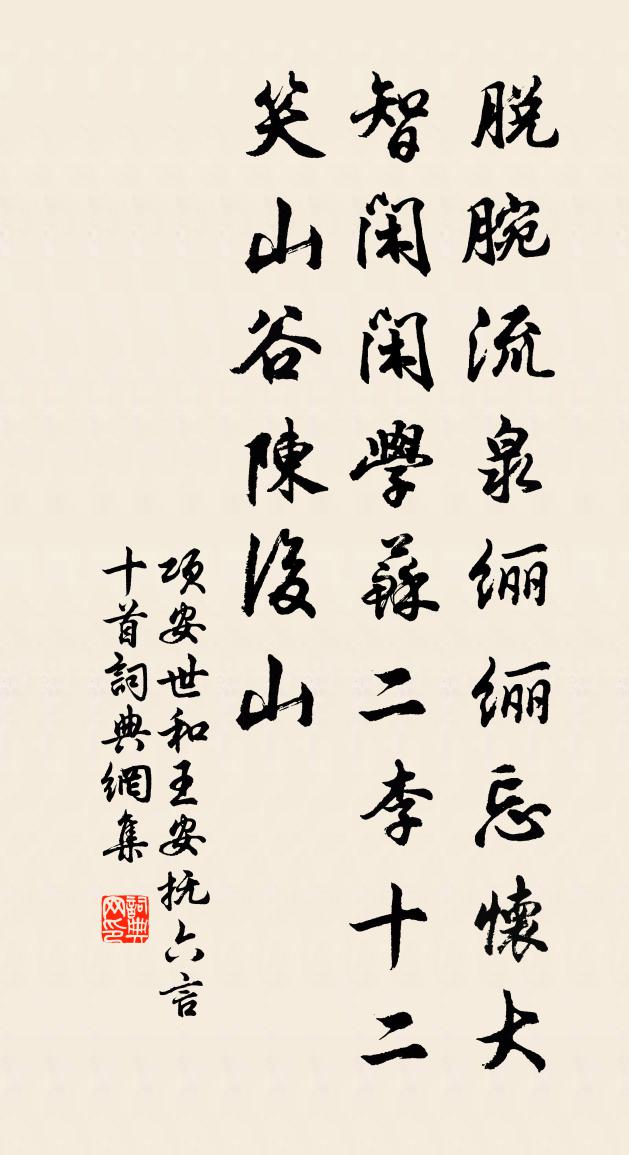 脱腕流泉𬘭𬘭忘懷大
智閑閑學蘇二李十二
笑山谷陳後山
項安世和王安抚六言
十首詞典網集
詞典网印